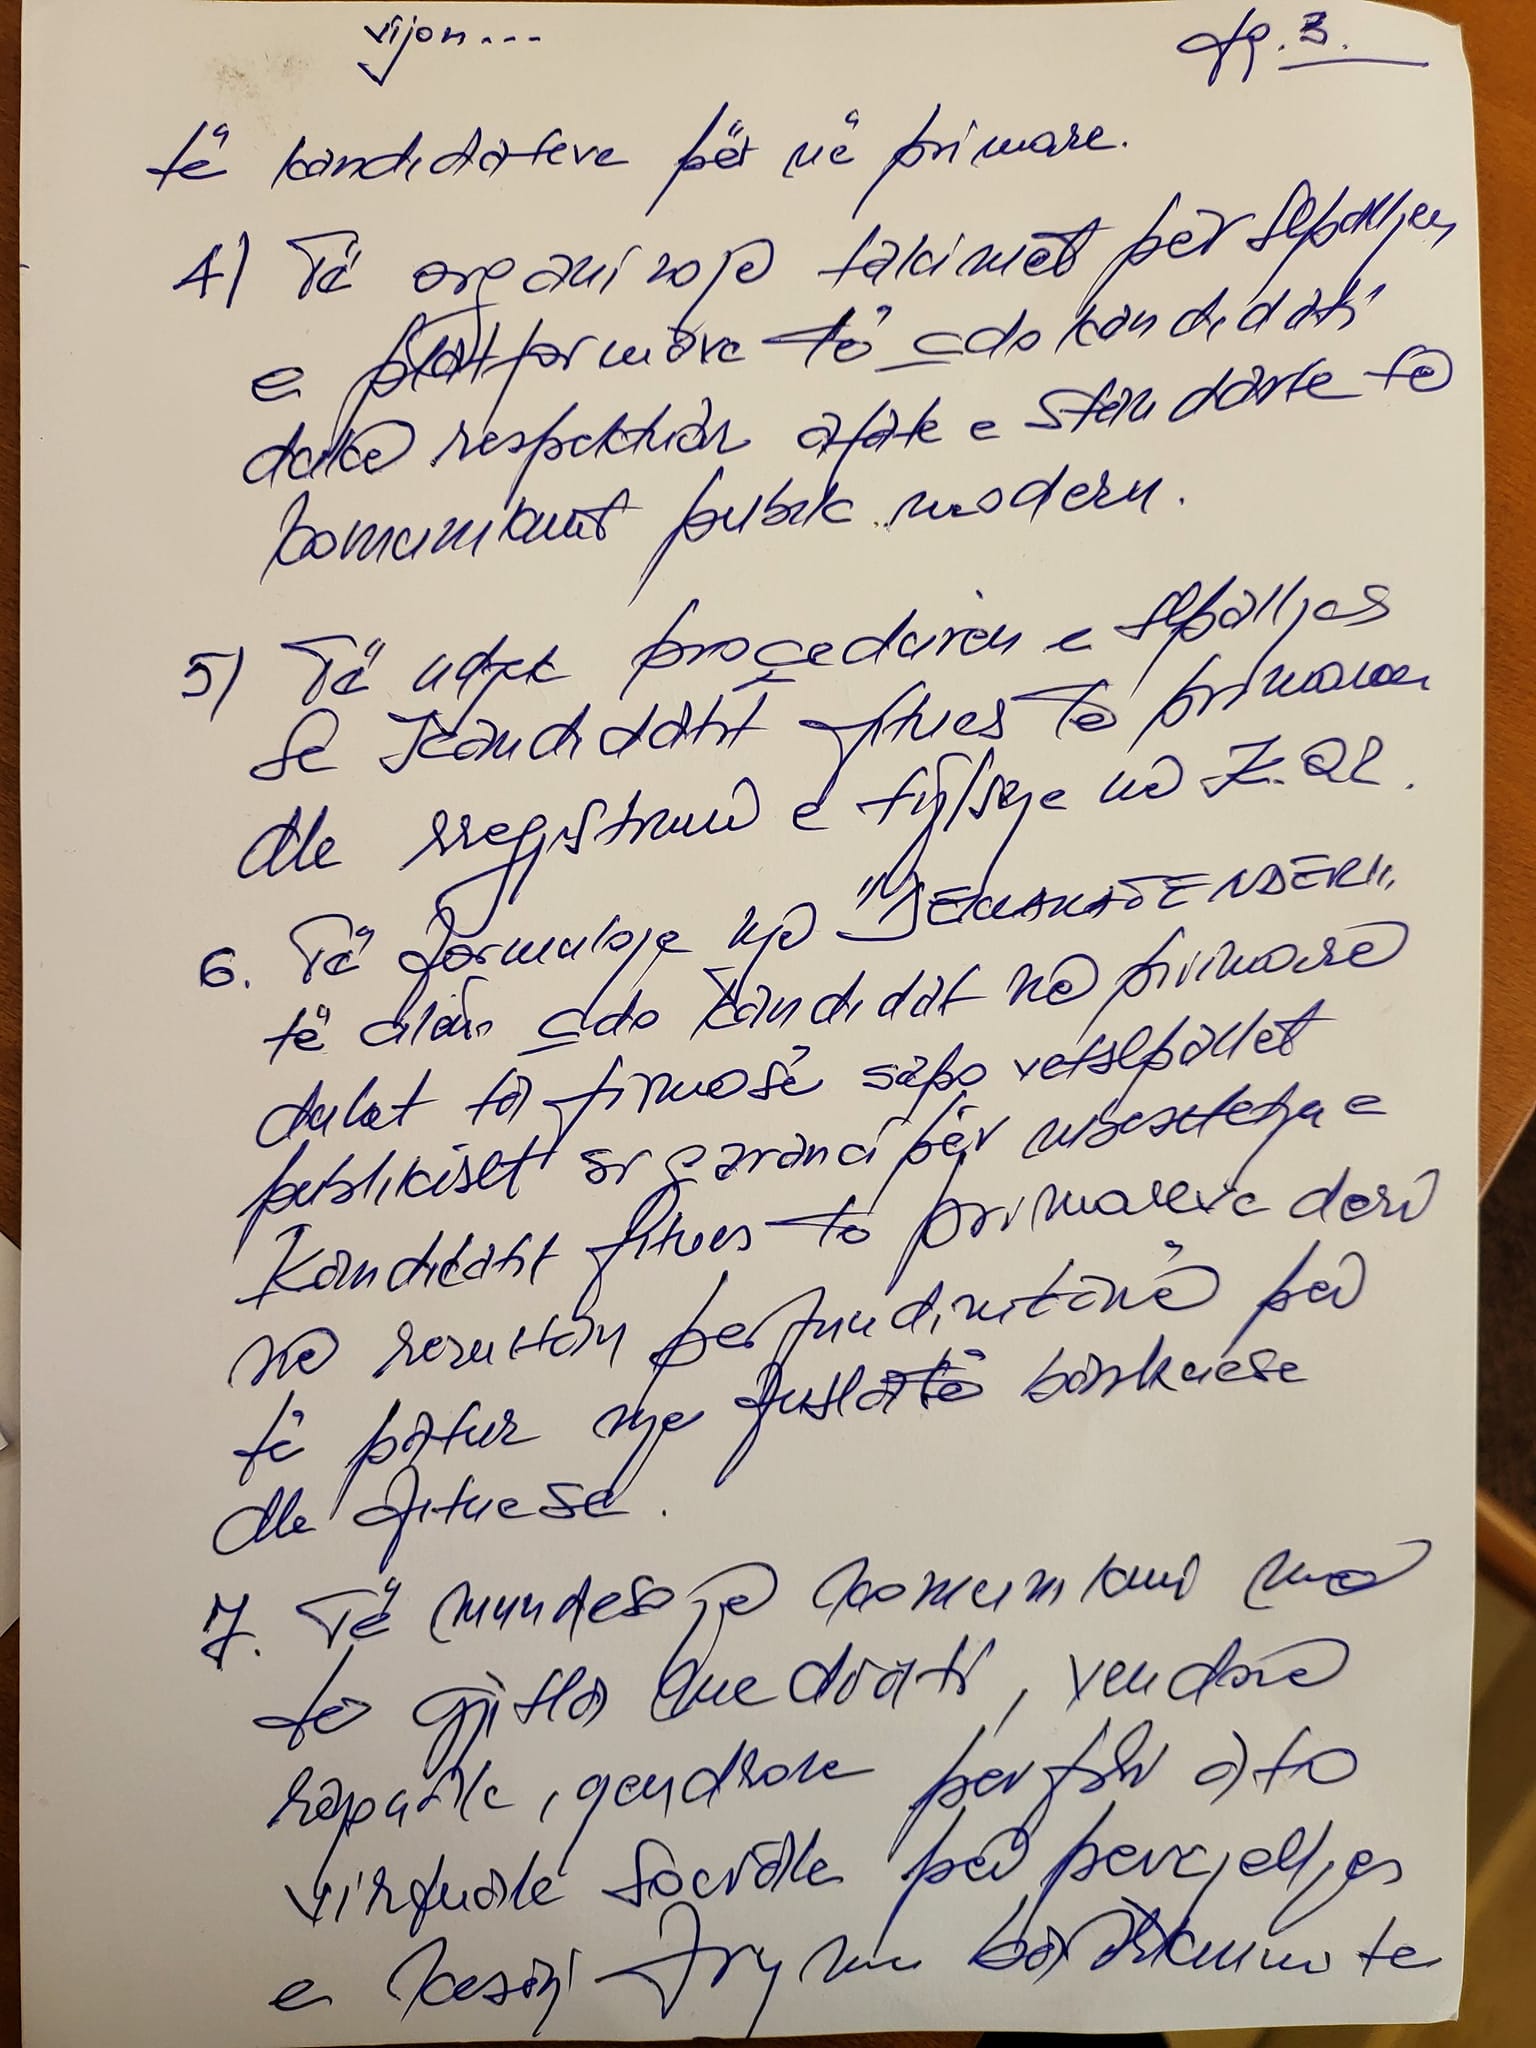 vijon... fq. 3.
të kandidateve për në primare.
4) Të organizoje takimet për shpalljen
e platformave të çdo kandidati
duke respektuar afate e standarte të
komunikimit publik modern.
5) Të ndjek proçeduren e shpalljes
se Kandidatit fitues te primareve
dhe rregjistrimi e tij/saje në K.Q.Z.
6. Të formuloje një "DEKLARATE NDERI"
të cilën çdo kandidat në primare
duhet ta firmosë sapo vetshpallet
publikisht si garanci për mbeshtetje e
Kandidatit fitues te primareve deri
në rezultatin perfundimtarë për
të patur nje fushatë bashkuese
dhe fituese.
7. Të mundesojë komunikimi me
te gjitha mediati, vendore
rajonale, qendrore perfshi ato
virtuale sociale për percjelljen
e kesaj fryme bashkimi te